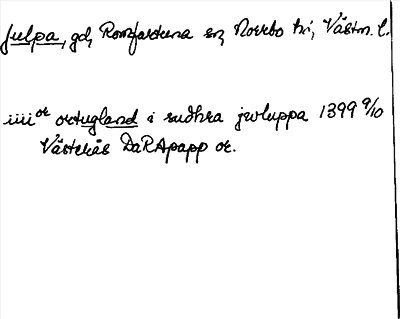 Julpa, gd, Romfartuna sn, Norrbo hd, Västm. l.
iiii or ortugland i sudhra jwluppa 1399 9/10
Västerås DaRApapp or.